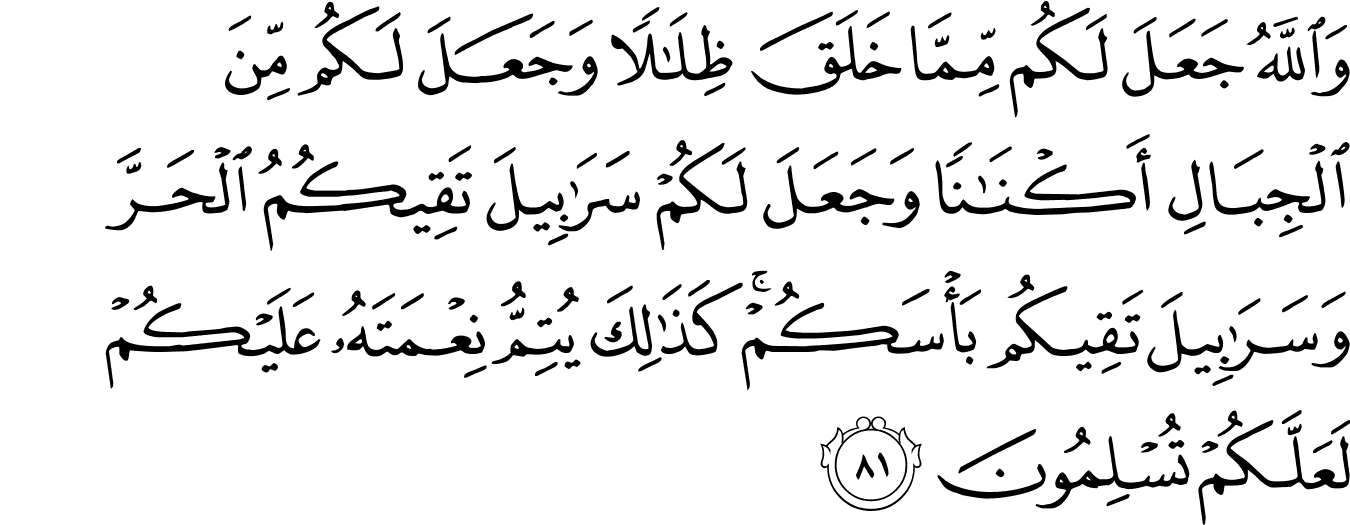 وَٱللَّهُ جَعَلَ لَكُم مِّمَّا خَلَقَ ظِلَـٰلًا وَجَعَلَ لَكُم مِّنَ
ٱلْجِبَالِ أَكْنَـٰنًا وَجَعَلَ لَكُمْ سَرَٰبِيلَ تَقِيكُمُ ٱلْحَرَّ
وَسَرَٰبِيلَ تَقِيكُم بَأْسَكُمْ ۚ كَذَٰلِكَ يُتِمُّ نِعْمَتَهُۥ عَلَيْكُمْ
لَعَلَّكُمْ تُسْلِمُونَ ٨١